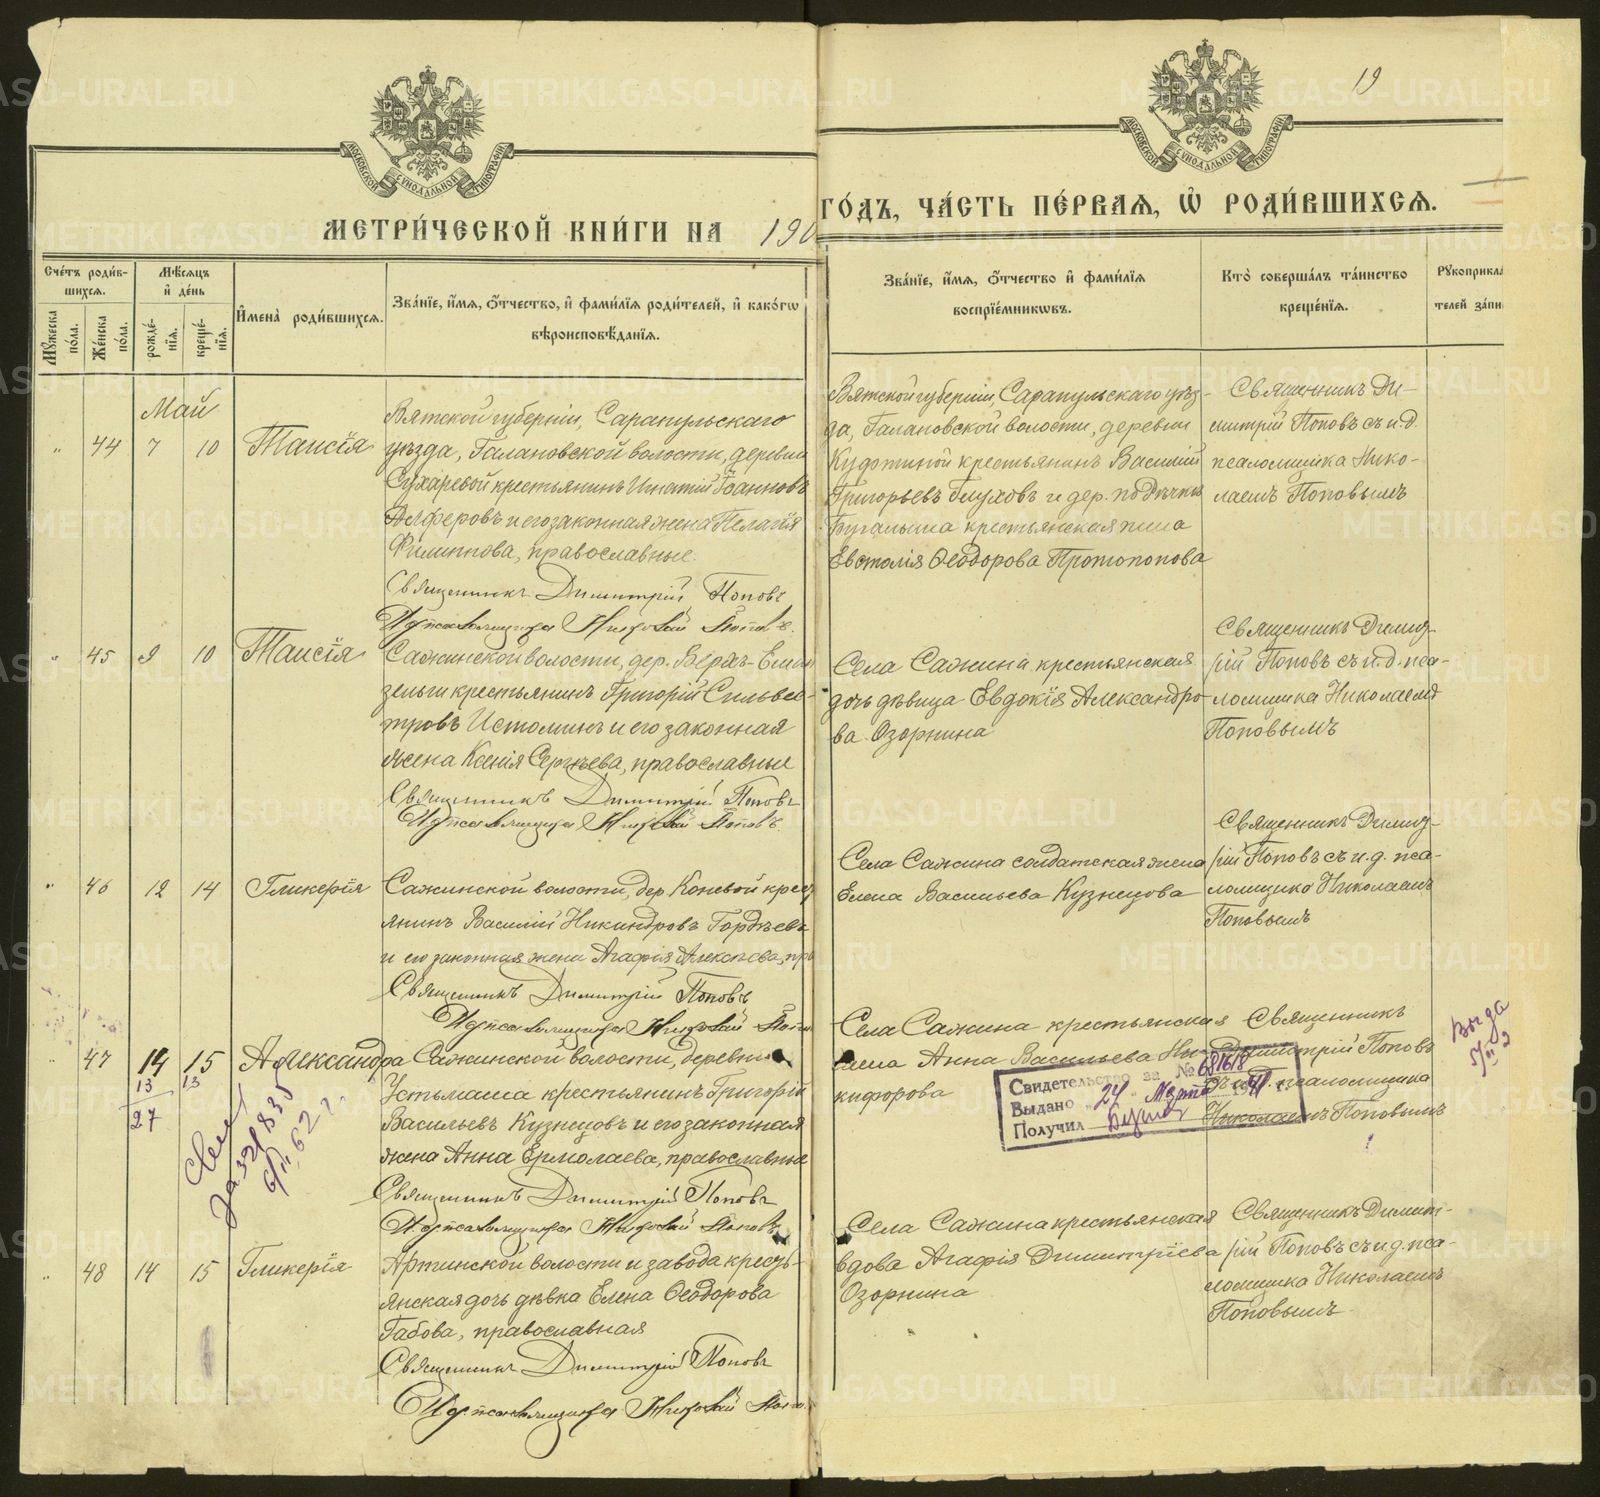 19
МОСКОВСКОЙ СѴНОДАЛЬНОЙ ТИПОГРАФІИ
МОСКОВСКОЙ СѴНОДАЛЬНОЙ ТИПОГРАФІИ
МЕТРИ́ЧЕСКОЙ КНИ́ГИ НА 190 ГО́ДЪ, ЧА́СТЬ ПЕ́РВАѦ, Ѡ҆ РОДИ́ВШИХСѦ.
Сче́тъ роди́в-
шихсѧ.
Мꙋ́жеска по́ла.
Же́нска по́ла.
Мѣ́сѧцъ
и҆ де́нь
рожде́-
нїѧ.
креще́-
нїѧ.
И҆мена̀ роди́вшихсѧ.
Зва́нїе, и҆́мѧ, ѻ҆́тчество, и҆ фами́лїѧ роди́телей, и҆ како́гѡ
вѣроисповѣ́данїѧ.
Зва́нїе, и҆́мѧ, ѻ҆́тчество и҆ фами́лїѧ
воспрїе́мникѡвъ.
Кто̀ соверша́лъ та́инство
креще́нїѧ.
Рꙋкоприкла
телей за́пи
Май
" 44 7 10 Таисія
Вятской губерніи, Сарапульскаго
уѣзда, Галановской волости, деревни
Сухаревой крестьянинъ Игнатій Іоанновъ
Алферовъ и его законная жена Пелагія
Филиппова, православные.
Священникъ Димитрій Поповъ
И. д. псаломщика Николай Поповъ.
Вятской губерніи, Сарапульскаго уѣз-
да, Галановской волости, деревни
крестьянинъ Василій
Григорьевъ Глуховъ и дер.
крестьянская
Евстолія Ѳеодорова Протопопова
Священникъ Ди-
митрій Поповъ съ и. д.
псаломщика Нико-
лаемъ Поповымъ
" 45 9 10 Таисія
Сажинской волости, дер. Верхъ-
крестьянинъ Григорій Сильвес-
тровъ Истоминъ и его законная
жена Ксенія Сергѣева, православные
Священникъ Димитрій Поповъ
И. д. псаломщика Николай Поповъ.
Села Сажина крестьянская
дочь дѣвица Евдокія Александро-
ва Озорнина
Священникъ Димит-
рій Поповъ съ и. д. пса-
ломщика Николаемъ
Поповымъ
" 46 12 14 Гликерія
Сажинской волости, дер. Коневой крест
янинъ Василій Никандровъ Гордѣевъ
и его законная жена Агафія Алексѣева, пра
Священникъ Димитрій Поповъ
И. д. псаломщика Николай Попо
Села Сажина солдатская жена
Елена Васильева Кузнецова
Священникъ Димит-
рій Поповъ съ и. д. пса-
ломщика Николаемъ
Поповымъ
" 47 14 15 Александра
13 13
27
Сажинской волости, деревни
Устьмаша крестьянинъ Григорій
Васильевъ Кузнецовъ и его законная
жена Анна Ермолаева, православные
Священникъ Димитрій Поповъ
И. д. псаломщика Николай Поповъ
Села Сажина крестьянская
жена Анна Васильева Ни-
кифорова
Священникъ
Димитрій Поповъ
съ и. д. псаломщика
Николаемъ Поповымъ
Свидетельство за № 681618
Выдано 24 Марта 1941 г.
Получил
" 48 14 15 Гликерія
Артинской волости и завода кресть-
янская дочь дѣвка Елена Ѳеодорова
Габова, православная
Священникъ Димитрій Поповъ
И. д. псаломщика Николай Попо
Села Сажина крестьянская
вдова Агафія Димитріева
Озорнина
Священникъ Димит-
рій Поповъ съ и. д. пса-
ломщика Николаемъ
Поповымъ
METRIKI.GASO-URAL.RU